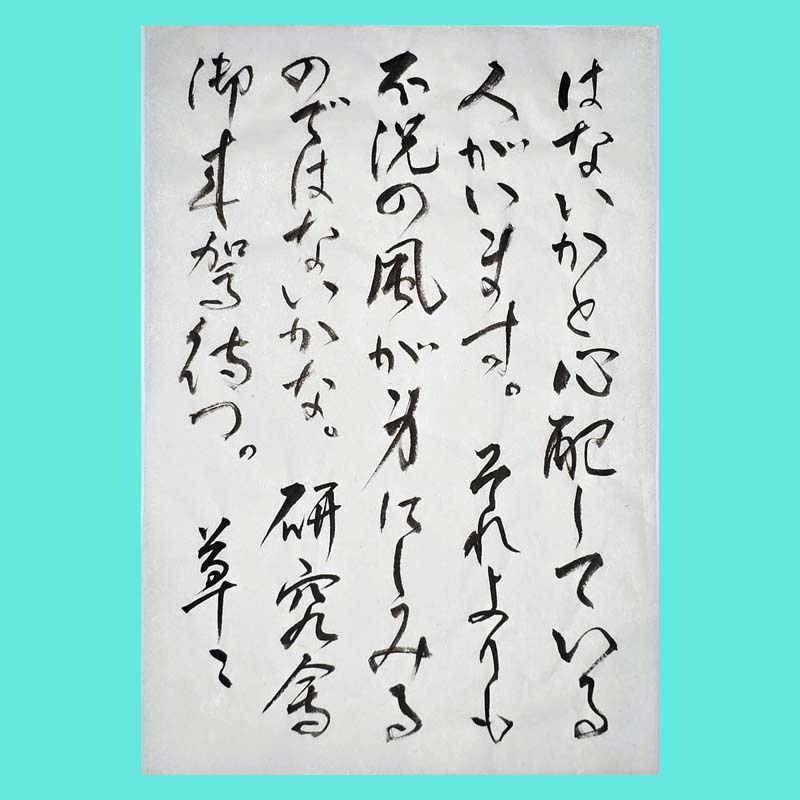 はないかと心配している
人がいます。それよりも
不況の風が身にしみる
のではないかな。研究会
御来駕待つ。草々